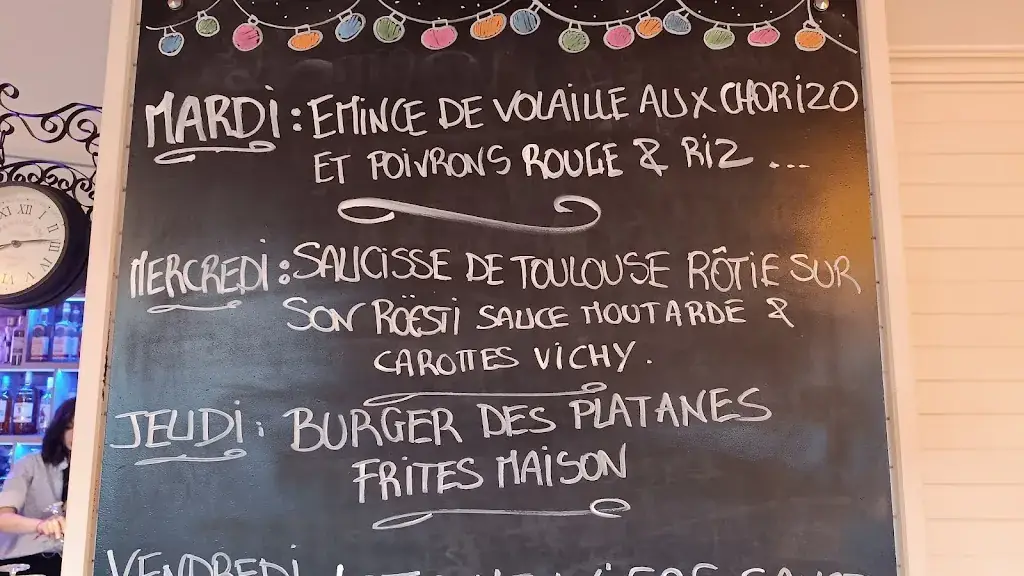 MARDI : EMINCE DE VOLAILLE AUX CHORIZO
ET POIVRONS ROUGE & RIZ ...
MERCREDI : SAUCISSE DE TOULOUSE RÔTIE SUR
SON RÖESTI SAUCE MOUTARDE &
CAROTTES VICHY.
JEUDI : BURGER DES PLATANES
FRITES MAISON
VENDREDI
XI XII I II III